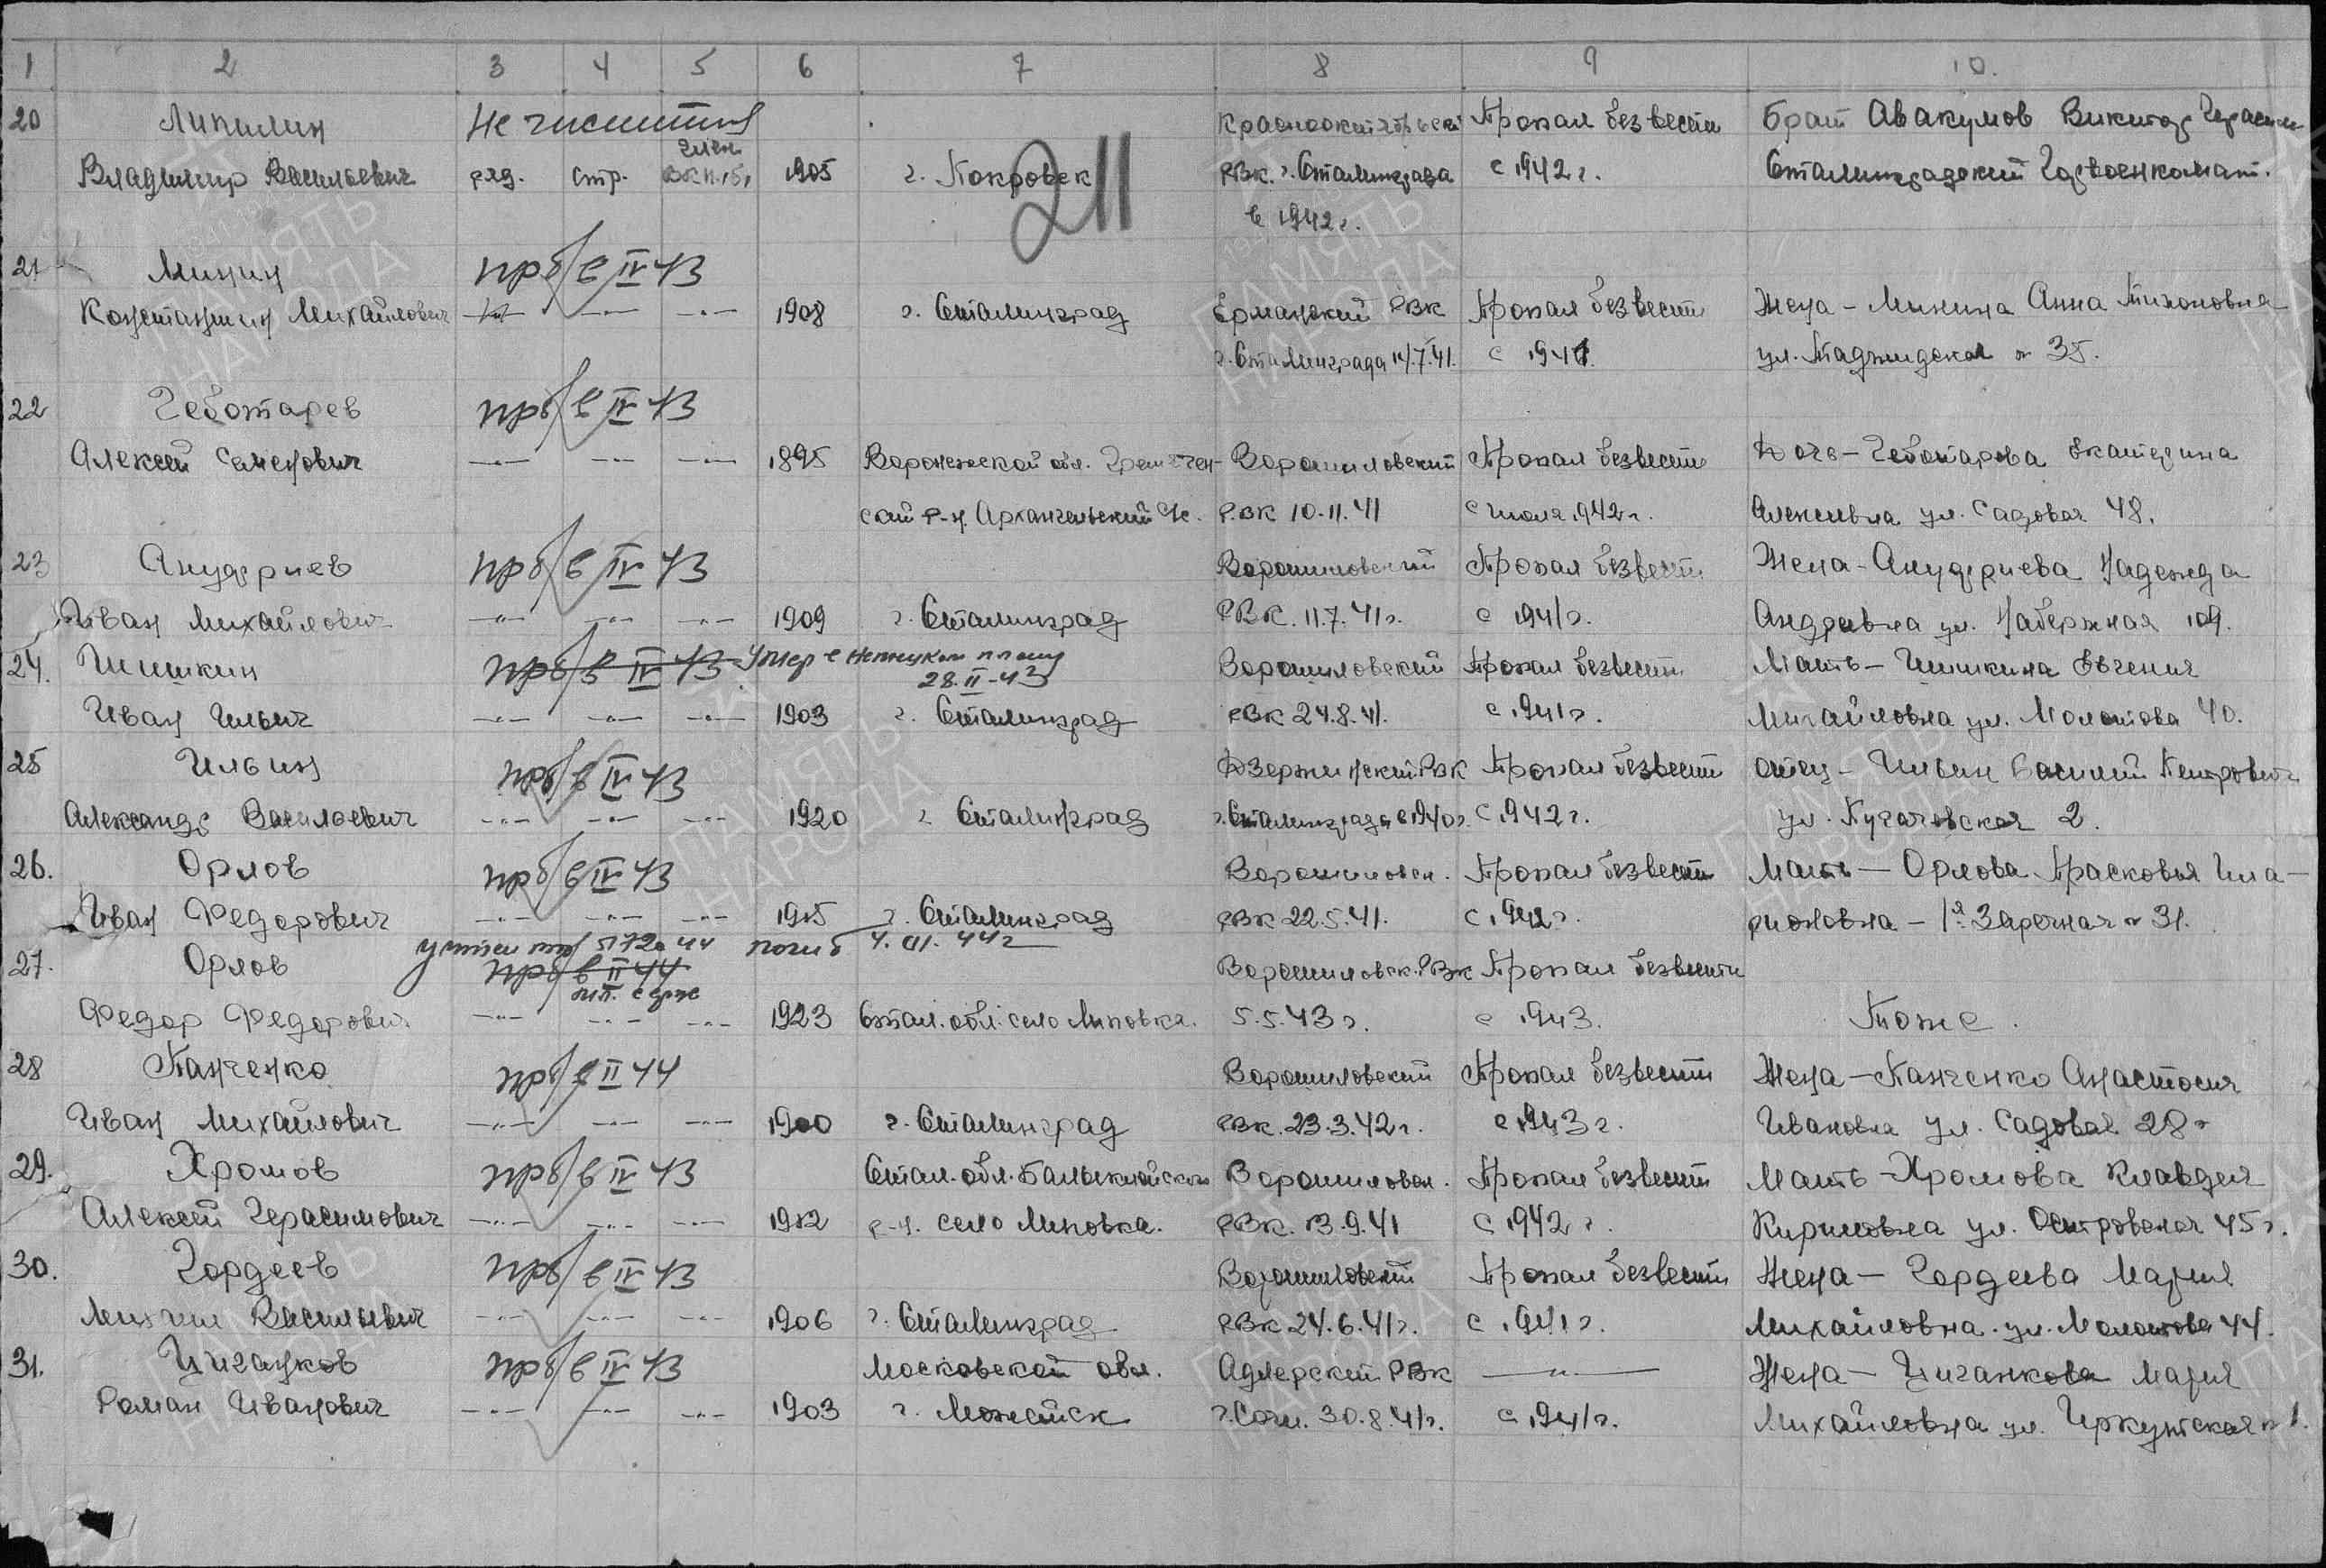 1 2 3 4 5 6 7 8 9 10.
20 Липилин Не числится Краснооктябрьский Пропал без вести Брат Авакумов Виктор Герасим
член
Владимир Васильевич ряд. стр. ВКП(б) 1905 г. Покровск РВК г. Сталинграда с 1942 г. Сталинградский Горвоенкомат.
в 1942 г.
211
21 Минин прб/в IV 43
Константин Михайлович —"— —"— —"— 1908 г. Сталинград Ерманский РВК Пропал без вести Жена – Минина Анна Тихоновна
г. Сталинграда 11/7.41. с 1941. ул. Таджидская № 35.
22 Чеботарев прб/в IV 43
Алексей Семенович —"— —"— —"— 1895 Воронежской обл. Ворошиловский Пропал без вести Дочь – Чеботарова Екатерина
ский р-н. Архангельский РВК 10.11.41 с июля 1942 г. Алексеевна ул. Садовая 48.
23 Анудриев прб/в IV 43 Ворошиловский Пропал без вести Жена – Анудриева Надежда
Иван Михайлович —"— —"— —"— 1909 г. Сталинград РВК. 11.7.41 г. с 1941 г. Андреевна ул. Набержная 109.
24. Шишкин прб/в IV 43 умер в немецком плену Ворошиловский Пропал без вести Мать – Шишкина Евгения
28.II-43
Иван Ильич —"— —"— —"— 1903 г. Сталинград РВК 24.8.41. с 1941 г. Михайловна ул. Молотова 40.
25 Ильин прб/в IV 43 Дзержинский РВК Пропал без вести Отец – Ильин Василий Петрович
Александр Васильевич —"— —"— —"— 1920 г. Сталинград г. Сталинграда в 1940 г. с 1942 г. ул. Пугачевская 2.
26. Орлов прб/в IV 43 Ворошиловск. Пропал без вести Мать – Орлова Прасковья Ила-
Иван Федорович —"— —"— —"— 1915 г. Сталинград РВК 22.5.41. с 1942 г. рионовна – 1я Заречная № 31.
погиб 44 г
27. Орлов прб/в II 44 Ворошиловск. РВК Пропал без вести
Федор Федорович —"— —"— —"— 1923 Стал. обл. село Липовка. 5.5.43 г. с 1943. Тоже.
28 Панченко прб/в II 44 Ворошиловский Пропал без вести Жена – Панченко Анастосия
Иван Михайлович —"— —"— —"— 1900 г. Сталинград РВК. 23.3.42 г. с 1943 г. Ивановна ул. Садовая 28
29. Хромов прб/в IV 43 Стал. обл. Балыклейского Ворошиловск. Пропал без вести Мать – Хромова Клавдея
Алексей Герасимович —"— —"— —"— 1912 р-н. село Липовка. РВК. 13.9.41 с 1942 г. Кириловна ул. Островская 45
30. Гордеев прб/в IV 43 Ворошиловский Пропал без вести Жена – Гордеева Мария
Михаил Васильевич —"— —"— —"— 1906 г. Сталинград РВК 24.6.41 г. с 1941 г. Михайловна. ул. Молотова 44.
31. Циганков прб/в IV 43 Московской обл. Адлерский РВК —"— Жена – Циганкова Мария
Роман Иванович —"— —"— —"— 1903 г. Можайск г. Сочи. 30.8.41 г. с 1941 г. Михайловна ул. Иркутская № 1.
ПАМЯТЬ НАРОДА